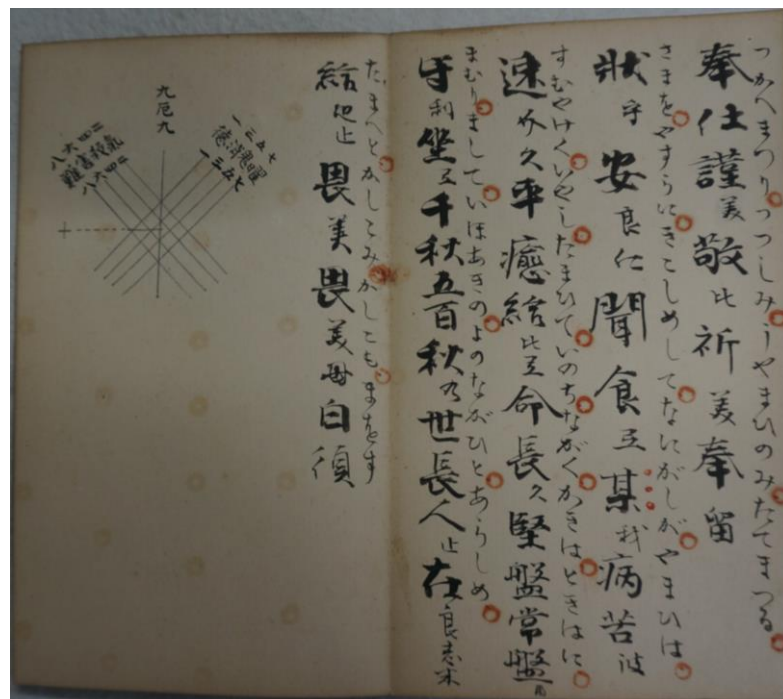 つかへまつりつつしみうやまひのみたてまつる
奉仕謹美敬比祈美奉留
さまをやすらにきこしめしてなにがしがやまひは
狀乎安良仁聞食弖某我病苦波
すむやけくいやしたまひていのちながくかきはときはに
速介久平癒給比弖命長久堅盤常盤
まむりましていほあきのよのながひとあらしめ
守利坐弖千秋五百秋乃世長人止在良志米
たまへとかしこみかしこもまをす
給也止畏美畏美毋白須
九厄九
一三五七
徳消鬼曜
一三五七
二四六八
難害殺氣
八六四二